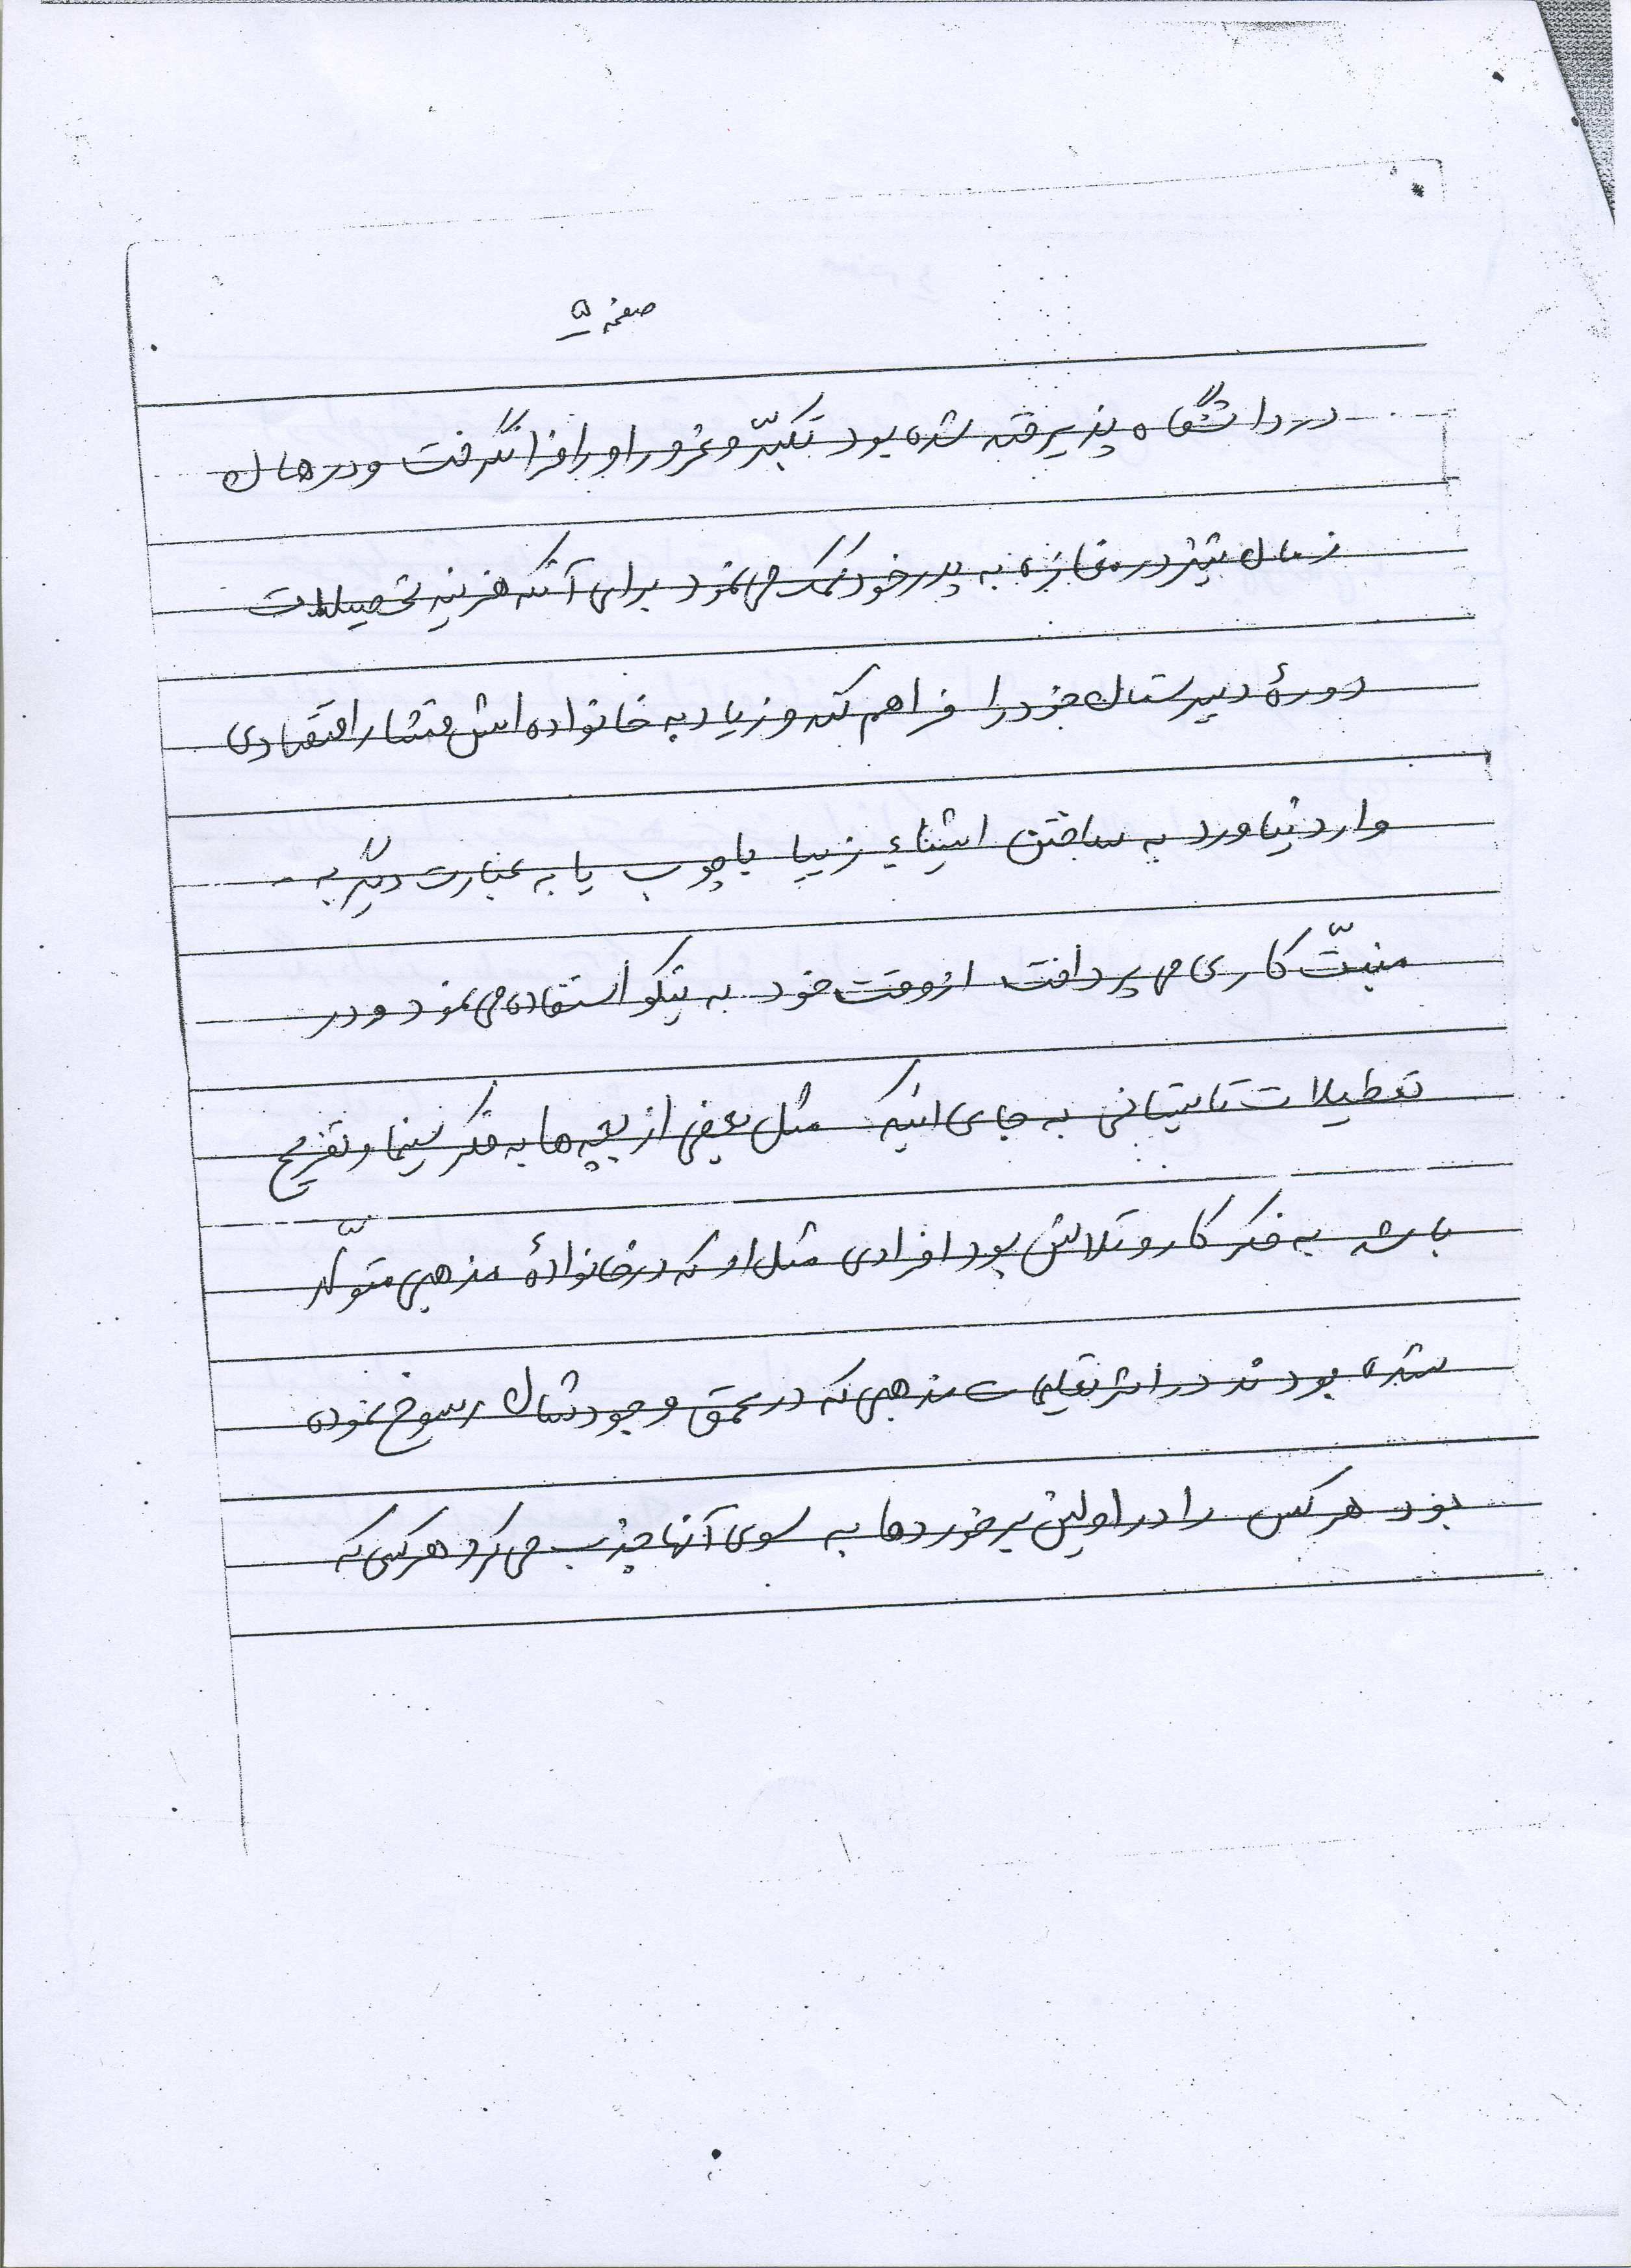 صفحه ۵
در دانشگاه پذیرفته شده بود تکبّر و غرور او را فرا نگرفت و در همان
زمان نیز در مغازه به پدر خود کمک می نمود برای آنکه هزینه تحصیلات
دورهٔ دبیرستان خود را فراهم کند و زیاد به خانواده اش فشار اقتصادی
وارد نیاورد به ساختن اشیاء زیبا با چوب یا به عبارت دیگر به -
منبّت کاری می پرداخت از وقت خود به نیکو استفاده می نمود و در
تعطیلات تابستانی به جای اینکه مثل بعضی از بچه ها به فکر سینما و تفریح
باشد به فکر کار و تلاش بود افرادی مثل او که در خانوادهٔ مذهبی متولّد
شده بودند در اثر تعلیمات مذهبی که در عمق وجودشان رسوخ نموده
بود هر کس را در اولین برخوردها به سوی آنها جذب می کرد هر کسی که